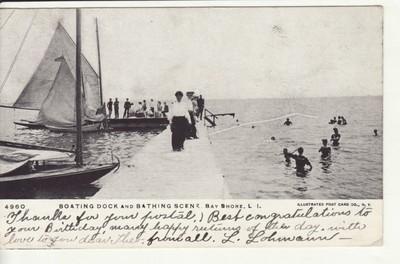 4960 BOATING DOCK AND BATHING SCENE, BAY SHORE, L I. ILLUSTRATED POST CARD CO., N. Y.
Thanks for your postal,) Best congratulations to
your Birthday, many happy returns of the day, with
love to you dear from all. L. Lohmann